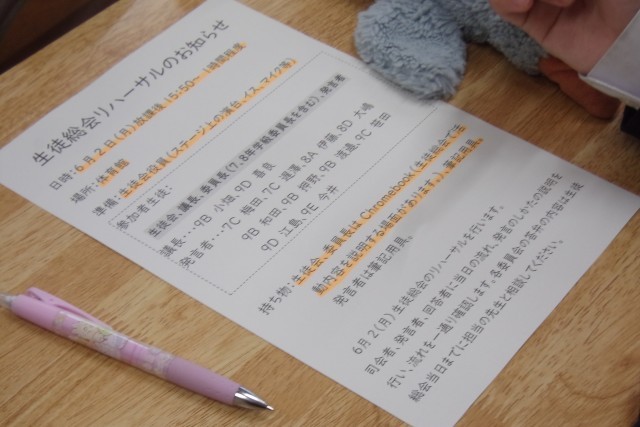 生徒総会リハーサルのお知らせ
日時：6月2日(月)放課後、15:50～ 1時間程度
場所：体育館
準備：生徒会役員(ステージ上の演台、イス、マイク等)
参加者生徒：
生徒会、議長、委員長(7、8年学級委員長を含む)、発言者
議長・・・9B 小畑、9D 嘉良
発言者・・・7C 梅田、7C 逢澤、8A 伊藤、8D 大嶋
9B 和田、9B 押野、9B 渡邉、9C 笹田
9D 江島、9E 今井
持ち物：生徒会、委員長は Chromebook(生徒総会で活
動内容を説明する場面があります。)、筆記用具。
発言者は筆記用具。
6月2(月)生徒総会のリハーサルを行います。
司会者、発言者、回答者に当日の流れ、発言のしかたの説明を
行い、流れを一通り確認します。各委員会の答弁の内容は生徒
総会当日までに担当の先生と相談してください。